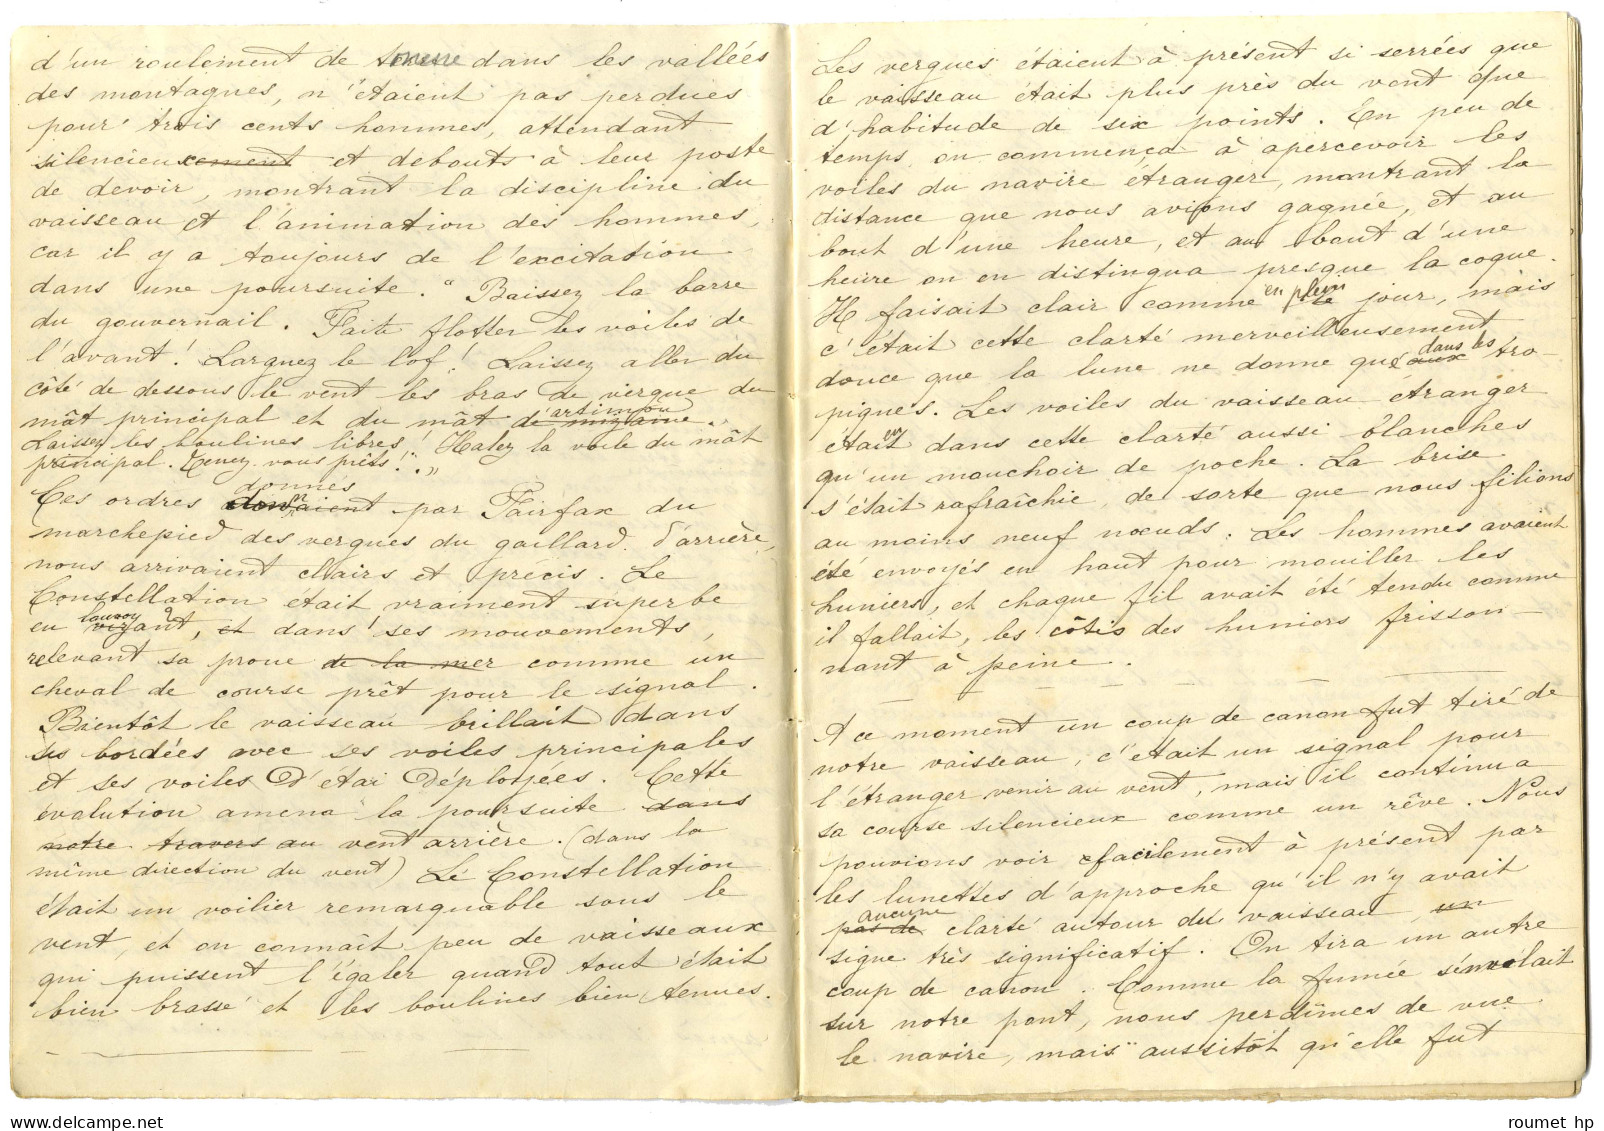 d'un roulement de tonnerre dans les vallées
des montagnes, n'étaient pas perdues
pour trois cents hommes, attendant
silencieuxcement et debouts à leur poste
de devoir, montrant la discipline du
vaisseau et l'animation des hommes,
car il y a toujours de l'excitation
dans une poursuite. "Baissez la barre
du gouvernail. Faite flotter les voiles de
l'avant! Larguez le lof! Laissez aller du
côté de dessous le vent les bras de vergue du
mât principal et du mât de mizaine artimon.
Laissez les boulines libres! Halez la voile du mât
principal. Tenez-vous prêts!.."
donnés
Ces ordres par Fairfax du
marchepied des vergues du gaillard d'arrière,
nous arrivaient clairs et précis. Le
Constellation etait vraiment superbe
en virant, et dans ses mouvements,
relevant sa proue de la mer comme un
cheval de course prêt pour le signal.
Bientôt le vaisseau brillait dans
ses bordées avec ses voiles principales
et ses voiles d'étai déployées. Cette
évolution amena la poursuite dans
notre travers au vent arrière. (dans la
même direction du vent) Le Constellation
était un voilier remarquable sous le
vent, et on connaît peu de vaisseaux
qui puissent l'égaler quand tout était
bien brassé et les boulines bien tenues.
Les vergues étaient à présent si serrées que
le vaisseau était plus près du vent que
d'habitude de six points. En peu de
temps on commença à apercevoir les
voiles du navire étranger, montrant la
distance que nous avions gagnée, et au
bout d'une heure, et au bout d'une
heure on en distingua presque la coque.
Il faisait clair comme en plein le jour, mais
c'était cette clarté merveilleusement
douce que la lune ne donne que aux dans les tro-
piques. Les voiles du vaisseau étranger
était en dans cette clarté aussi blanches
qu'un mouchoir de poche. La brise
s'était rafraîchie, de sorte que nous filions
au moins neuf nœuds. Les hommes avaient
été envoyés en haut pour mouiller les
huniers, et chaque fil avait été tendu comme
il fallait, les côtés des huniers frisson-
nant à peine.
A ce moment un coup de canon fut tiré de
notre vaisseau, c'était un signal pour
l'étranger venir au vent, mais il continua
sa course silencieux comme un rêve. Nous
pouvions voir facilement à présent par
les lunettes d'approche qu'il n'y avait
pas de aucune clarté autour du vaisseau, un
signe très significatif. On tira un autre
coup de canon. Comme la fumée s'envolait
sur notre pont, nous perdîmes de vue
le navire, mais aussitôt qu'elle fut
roumet hp